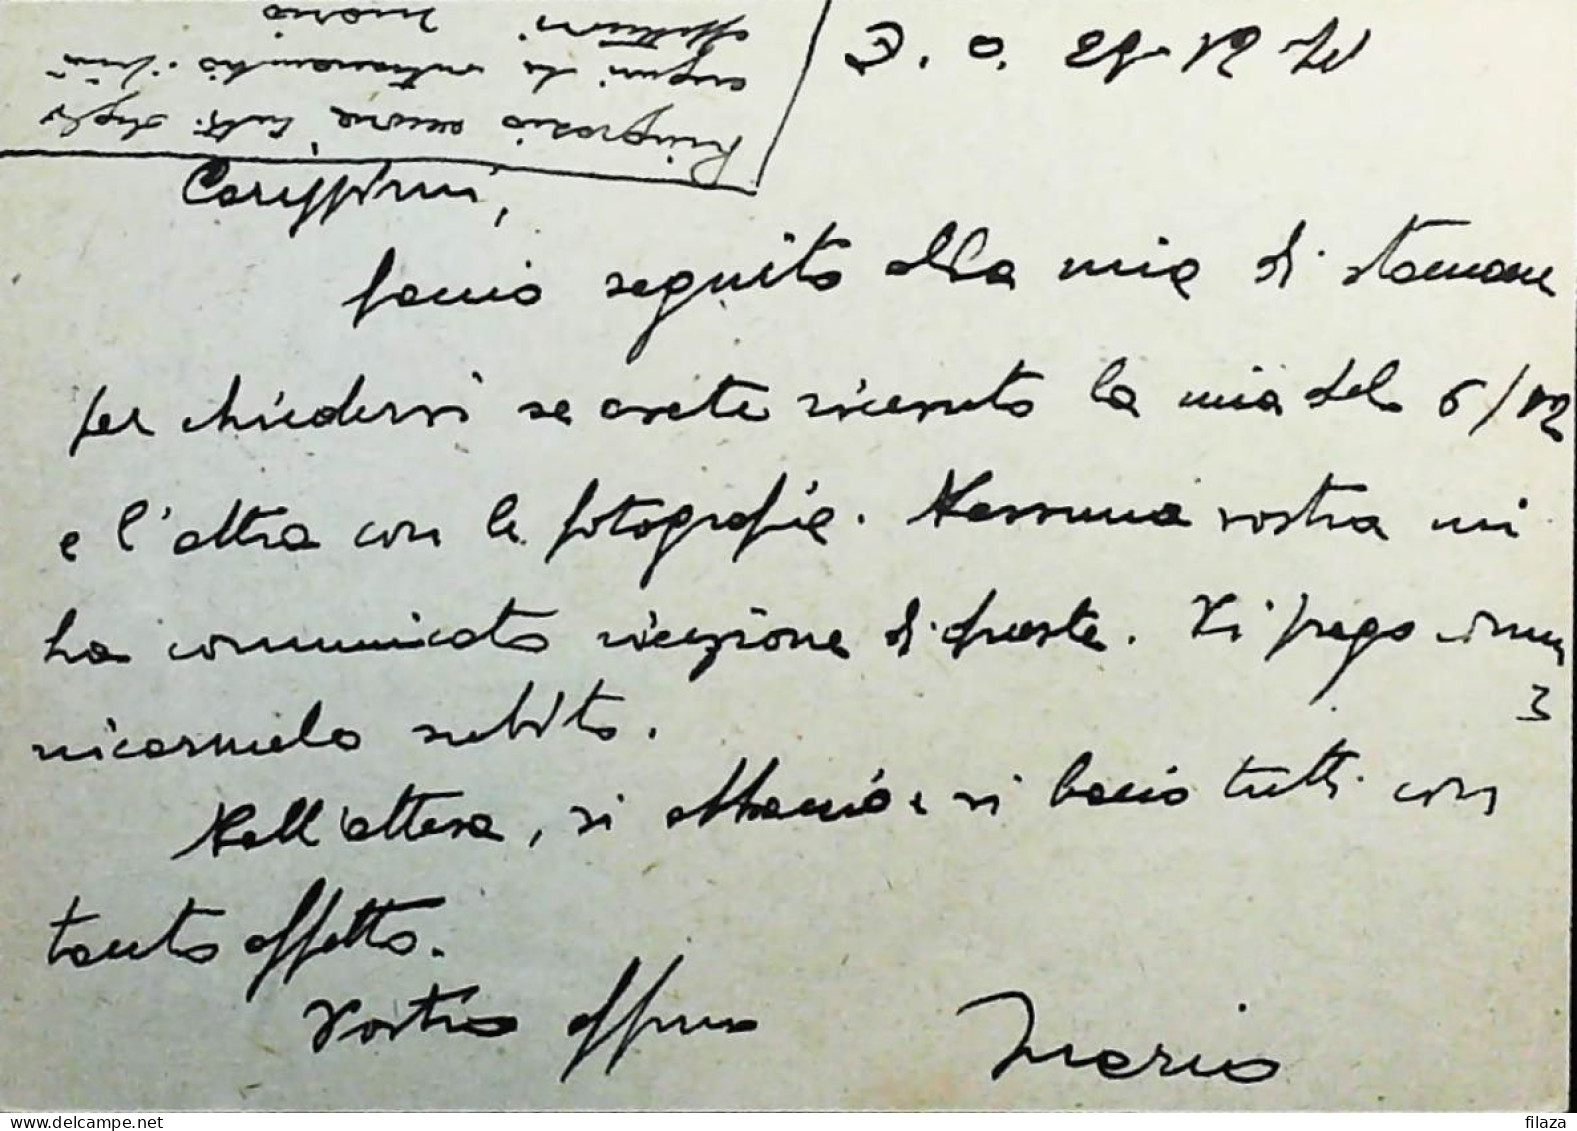 Z. O. 29-12-42
Carissimi,
faccio seguito alla mia di stamane
per chiedervi se avete ricevuto la mia del 6/12
e l'altra con le fotografie. Nessuna vostra mi
ha comunicato ricezione di queste. Vi prego comu
nicarmelo subito.
Nell'attesa, vi abbraccio e vi bacio tutti con
tanto affetto.
Vostro affmo
Mario
Ringrazio ancora tutti degli
auguri che ricambio
affettuosi
Mario
filaza